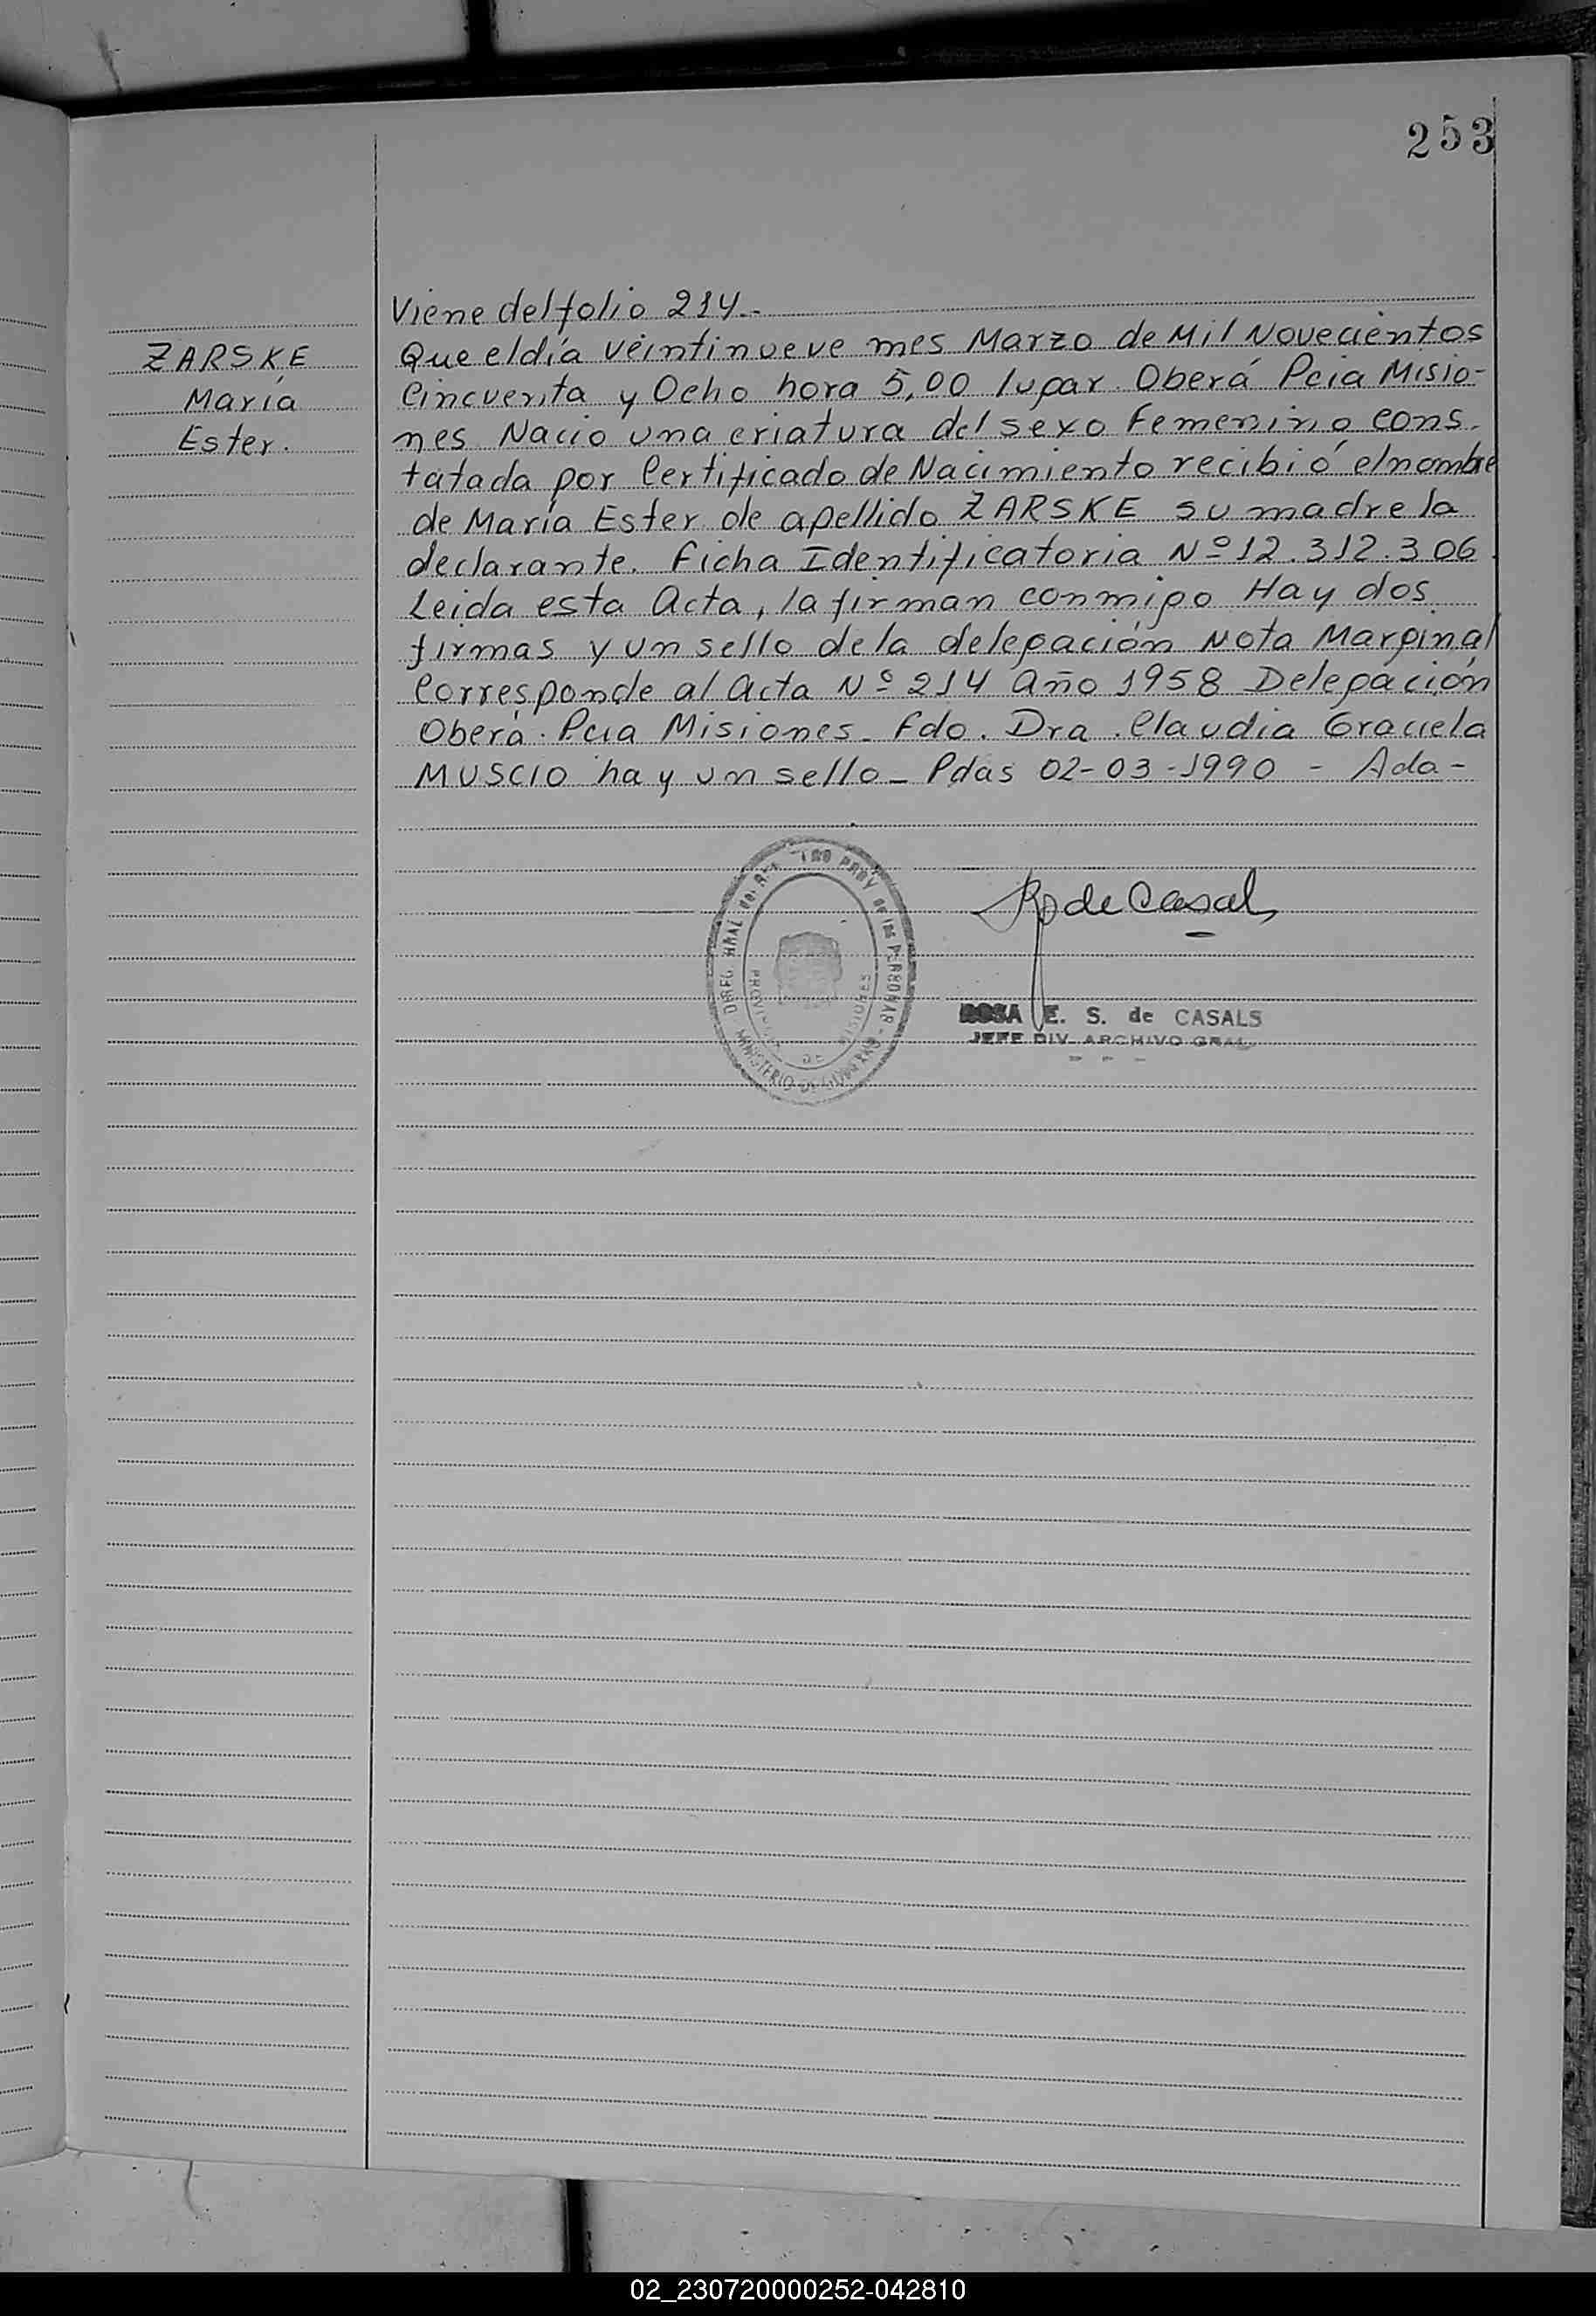 253
Viene del folio 214.-
ZARSKE
María
Ester.
Que el día veintinueve mes Marzo de Mil Novecientos
Cincuenta y Ocho hora 5,00 lugar Oberá Pcia Misio-
nes Nació una criatura del sexo Femenino cons-
tatada por Certificado de Nacimiento recibió el nombre
de María Ester de apellido ZARSKE su madre la
declarante. Ficha Identificatoria Nº 12.312.306.
Leida esta Acta, la firman conmigo Hay dos
firmas y un sello de la delegación Nota Marginal
Corresponde al Acta Nº 214 Año 1958 Delegación
Oberá. Pcia Misiones. Fdo. Dra. Claudia Graciela
MUSCIO hay un sello - Pdas 02-03-1990 - Ada-
de Casals
DIREC. GRAL del PROV de las PERSONAS
MINISTERIO DE GOBIERNO
PROVINCIA DE MISIONES
ROSA E. S. de CASALS
JEFE DIV. ARCHIVO GRAL.
02_230720000252-042810